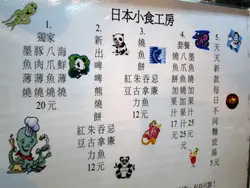 日本小食工房
1.
獨家
墨魚薄燒
豚肉薄燒
八爪魚薄燒
海鮮薄燒
20元
2.
新出啤啤熊燒餅
紅豆
朱古力
吞拿
12元
3.
燒魚餅
紅豆
朱古力
吞拿
12元
4.
套餐
八爪魚燒加果汁
17元
墨魚燒加果汁
25元
5.
天天新款
每日不同
5元